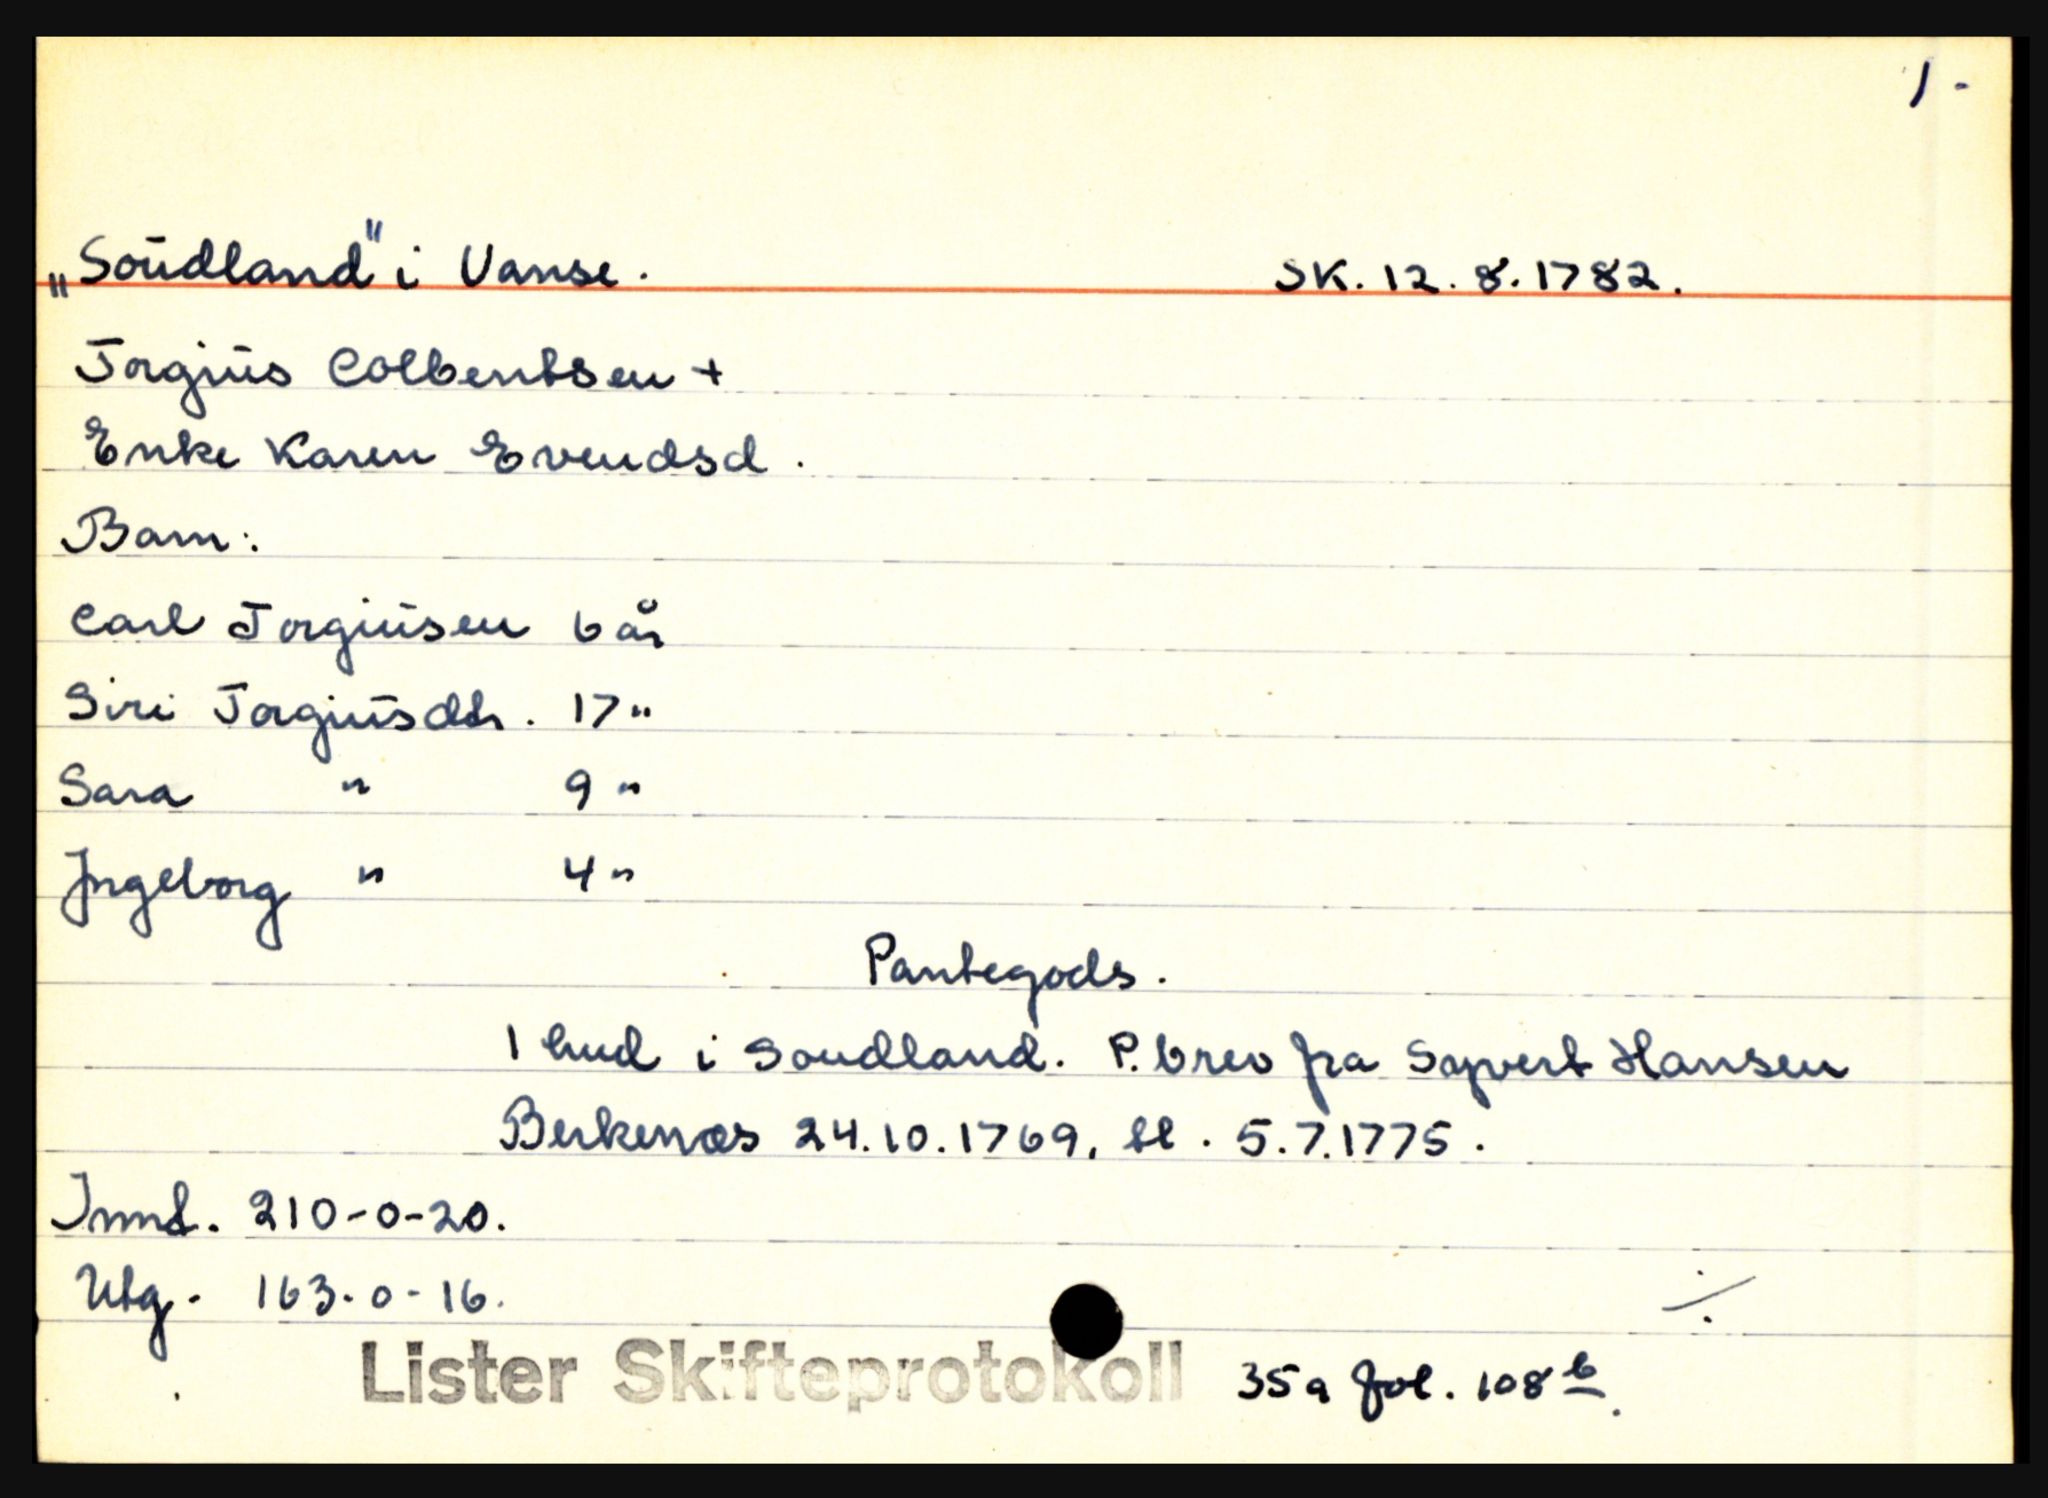 1-
„Soŭdland" i Vanse. SK. 12.8.1782.
Torgiŭs Colbentsen +
Enke Karen Evendsd.
Barn:.
Carl Torgiŭsen 6 år
Siri Torgiŭsdtr. 17 "
Sara " 9 "
Ingeborg " 4 "
Pantegods.
1 hud i Soudland. P.brev fra Syvert Hansen
Berkenæs 24.10.1769, tl. 5.7.1775.
Innt. 210-0-20.
Utg. 163-0-16.
Lister Skifteprotokoll 35a fol. 108b.